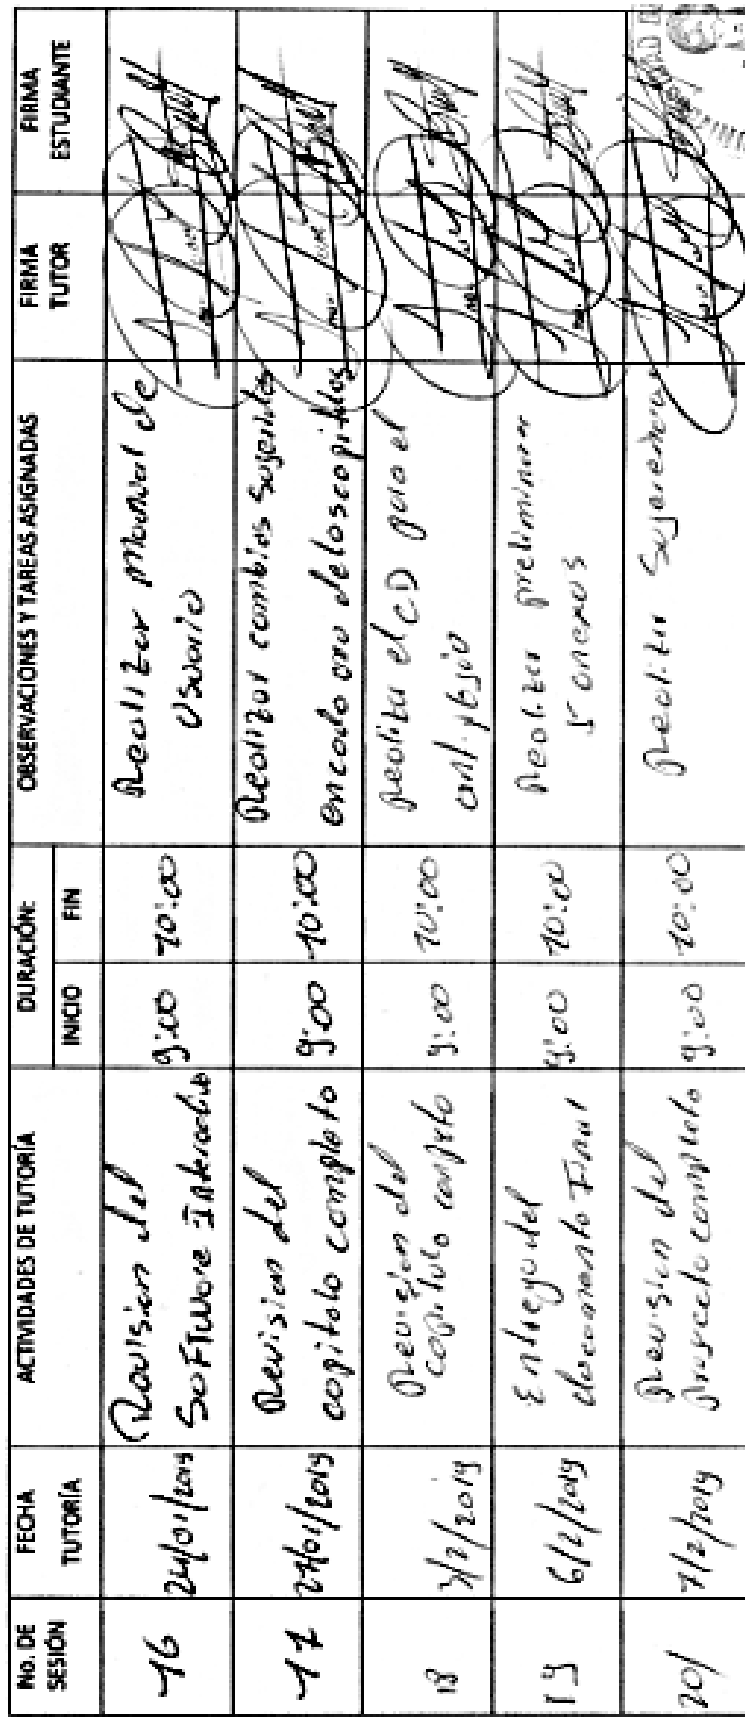 No. DE SESIÓN
FECHA TUTORÍA
ACTIVIDADES DE TUTORÍA
DURACIÓN:
INICIO
FIN
OBSERVACIONES Y TAREAS ASIGNADAS
FIRMA TUTOR
FIRMA ESTUDIANTE
16
24/01/2019
Revision del
Software Interactivo
9:00
10:00
Realizar manual de
usuario
17
27/01/2019
Revision del
capitulo completo
9:00
10:00
Realizar cambios sugeridos
en cada uno de los capitulos
18
/2/2019
Revision del
capitulo completo
9:00
10:00
Realizar el CD para el
19
6/2/2019
Entrega del
documento Final
9:00
10:00
Realizar preliminares
20
7/2/2019
Revision del
Proyecto completo
9:00
10:00
Realizar Sugerencias